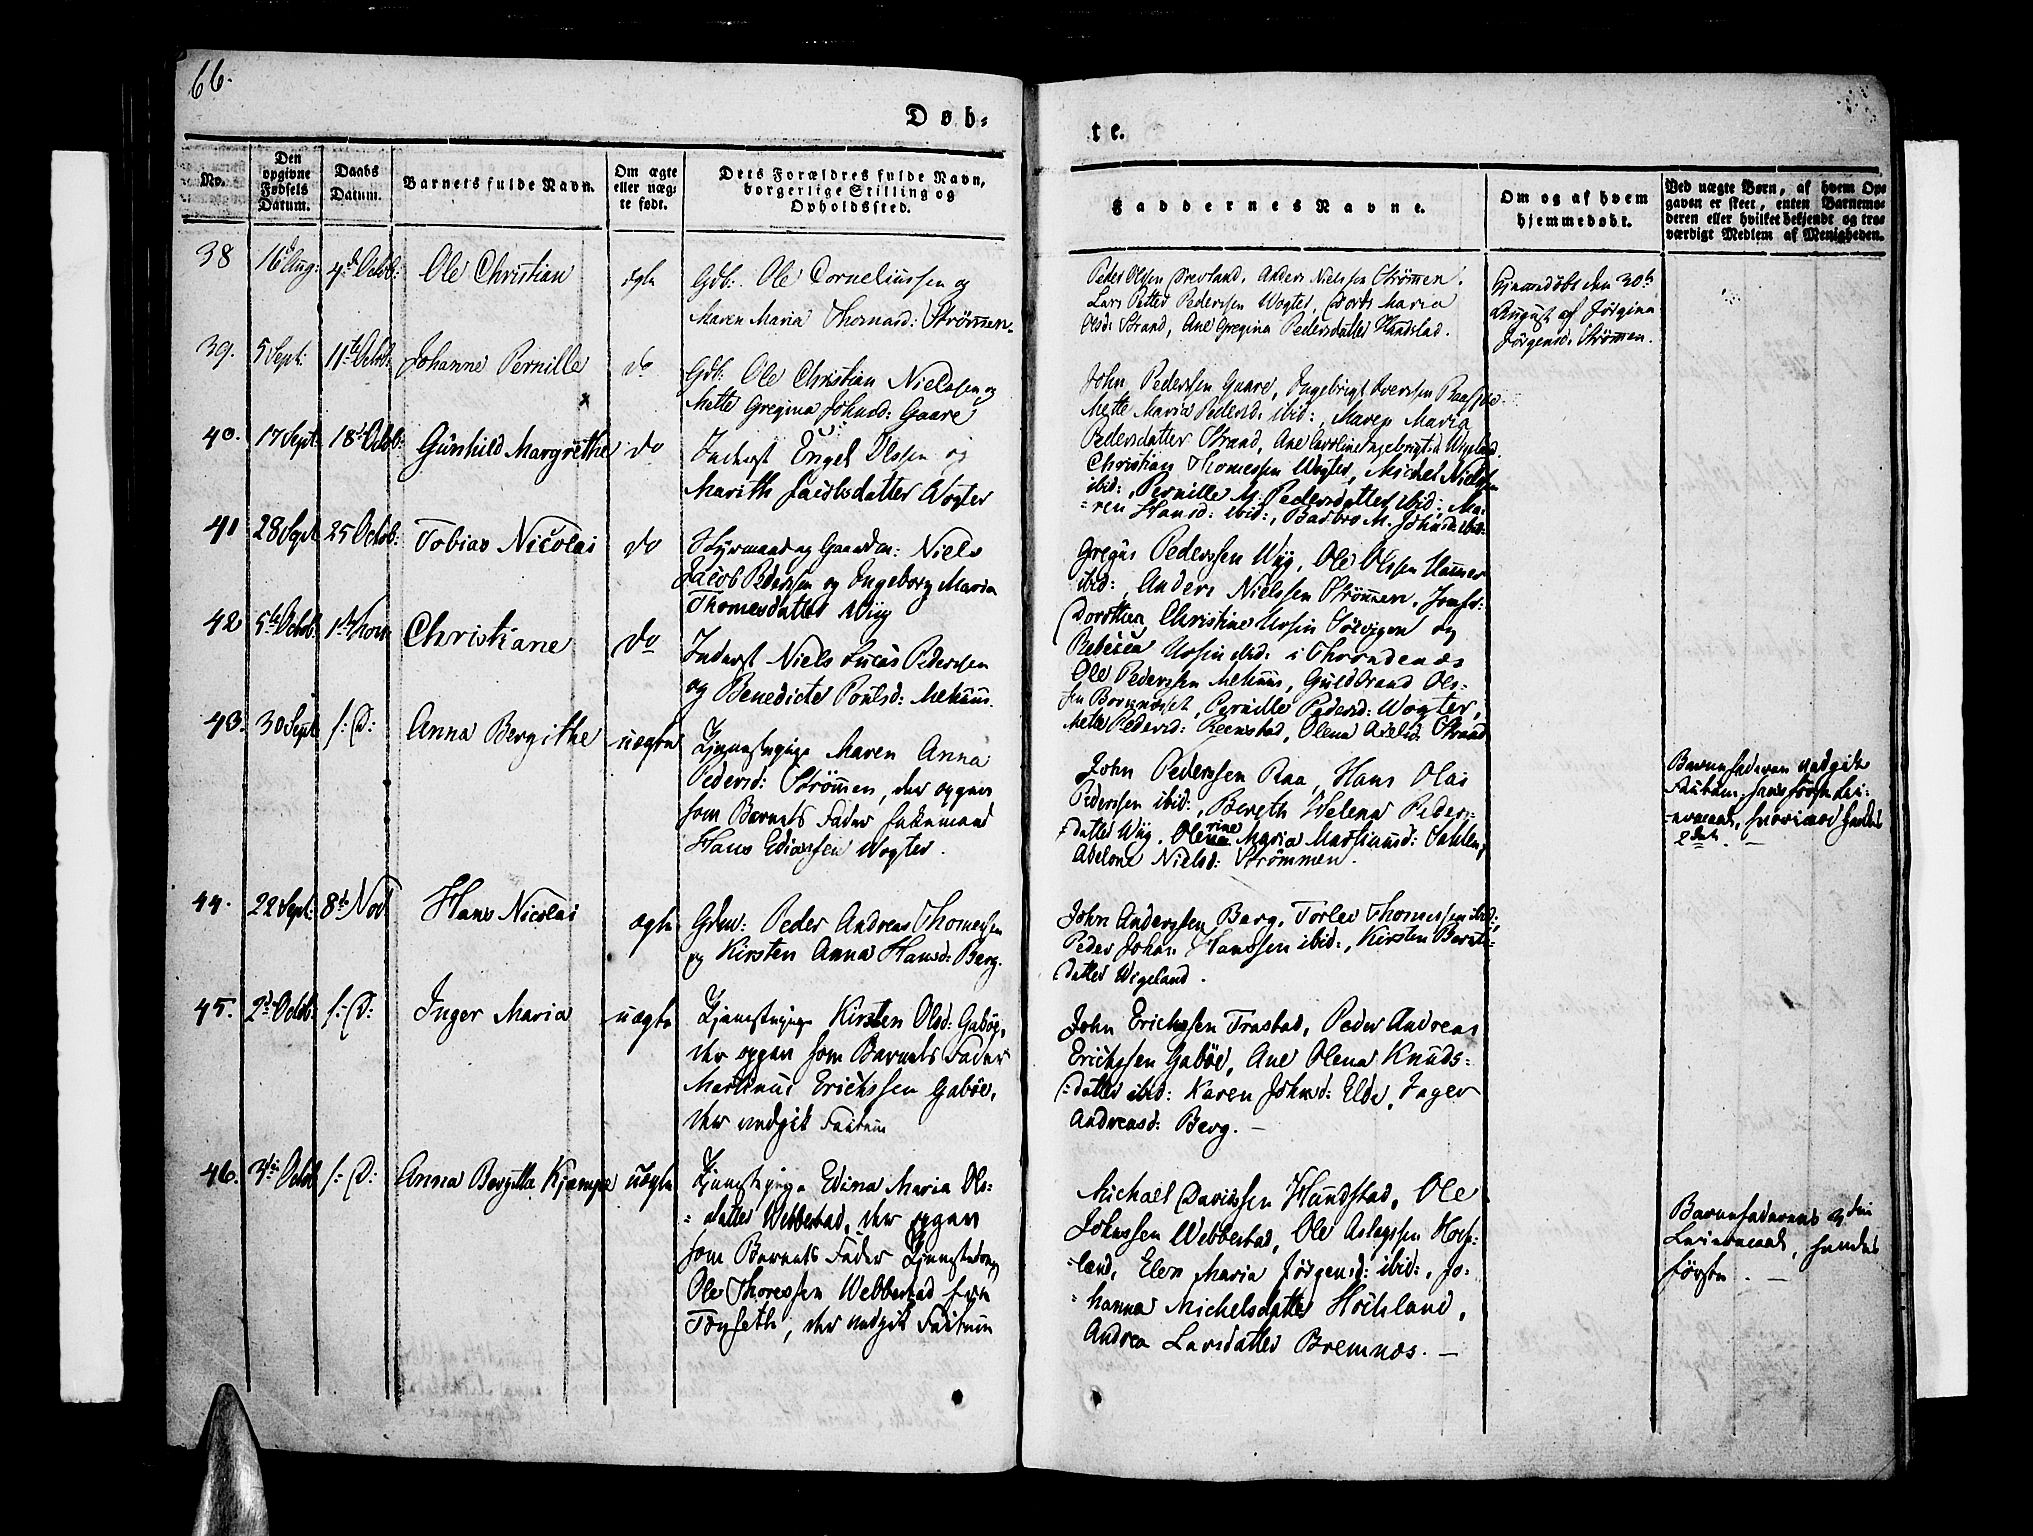 66.
Døb-
te.
No.
Den
opgivne
Fødsels
Datum.
Daabs
Datum.
Barnets fulde Navn.
Om ægte
eller uæg-
te født.
Dets Forældres fulde Navn,
borgerlige Stilling og
Opholdssted.
Faddernes Navne.
Om og af hvem
hjemmedøbt.
Ved uægte Børn, af hvem Op-
gaven er skeet, enten Barnemo-
deren eller hvilket bekjendt og tro-
værdigt Medlem af Menigheden.
38
16 Aug:
4de Octob:
Ole Christian
ægte
Gdb: Ole Corneliussen og
Maren Maria Thomasd: Strømmen.
Peder Olsen Drevland, Anders Nielssen Strømmen,
Lars Petter Pederssen Vogter, Dorth Maria
Olsd: Strand, Ane Gregina Pedersdatter Hundstad.
Hjemmedøbt den 30te
August af Jørgina
Jørgensd: Strømmen.
39.
5 Sept:
11te Octob:
Johanne Pernille
do
Gdb: Ole Christian Nielssen og
Mette Gregina Johnsd: Gaare
John Pederssen Gaare, Ingebrigt Iverssen
Mette Maria Pedersd: ibid:, Maren Maria
Pedersdatter Strand, Ane Caroline Ingebrigtsd
40.
17 Sept:
18de Octob:
Gunhild Margrethe
do
Inderst Engel Olssen og
Marith Jacobsdatter Vogter
Christian Thomessen Vogter, Michel Nielssen
ibid:, Pernille M. Pedersdatter ibid:, Ma-
ren Hansd: ibid:, Barbro M. Johnsd: ibid:
41
28 Sept
25 Octob:
Tobias Nicolai
do
Styrmand og Gaardm: Niels
Jacob Pederssen og Ingeborg Maria
Thomesdatter Wiig
Gregus Pederssen Wiig, Ole Olssen
ibid:, Anders Nielssen Strømmen, Jomfr:
Dorothea Christine Ursin Sørvigen og
Rebecca Ursin ibid: i Throndenæs
42
5te Octob:
1ste Nov
Christiane
do
Inderst Niels Lucas Pederssen
og Benedicte Poulsd: Melhuus.
Ole Pederssen Melhuus, Guldbrand Ols-
sen Bornæset, Pernille Pedersd: Vogter,
Mette Pedersd: Reenstad, Olena Axelsd: Strand
43.
30 Sept
s: D:
Anna Bergithe
uægte
Tjenestepige Maren Anna
Pedersd: Strømmen, der opgav
som Barnets Fader Enkemand
Hans Edisen Vogter.
John Pederssen Raa, Hans Olai
Pederssen ibid:, Bereth Helena Peders-
datter Wiig, Olerine Maria Martinusd: Dahlen,
Adelone Nielsd: Strømmen.
Barnefaderen vedgik
Factum, hans første Lei-
ermaal, hvorimod hendes
2det. —
44.
22 Sept:
8de Nov
Hans Nicolai
ægte
Grdm: Peder Andreas Thomessen
og Kirsten Anna Hansd: Berg.
John Anderssen Berg, Torlev Thomessen ibid:,
Peder Johan Hanssen ibid:, Kirsten Berets-
datter Wigeland.
45.
2d Octob:
s: D:
Inger Maria
uægte
Tjenestepige Kirsten Olsd: Gabøe,
der opgav som Barnets Fader
Martinus Erichssen Gabøe,
der vedgik Factum
John Erichssen Trastad, Peder Andreas
Erichssen Gabøe, Ane Olena Knuds-
datter ibid: Karen Johnsd: Elde, Inger
Andreasd: Berg. —
46.
3die Octob
s: D:
Anna Bergitta Kjempe
uægte
Tjenestepige Edina Maria Ols-
datter Webbestad, der opgav
som Barnets Fader Tjenestedreng
Ole Thoressen Webbestad fra
Tøyseth, der vedgik Factum
Michael Davidssen Hundstad, Ole
Johnssen Webbestad, Ole Aslagssen Hoch-
land, Elen Maria Jørgensd: ibid:, Jo-
hanna Michelsdatter Hochland,
Andrea Larsdatter Bremnæs. —
Barnefaderens 3die
Leiermaal, hendes
første. —